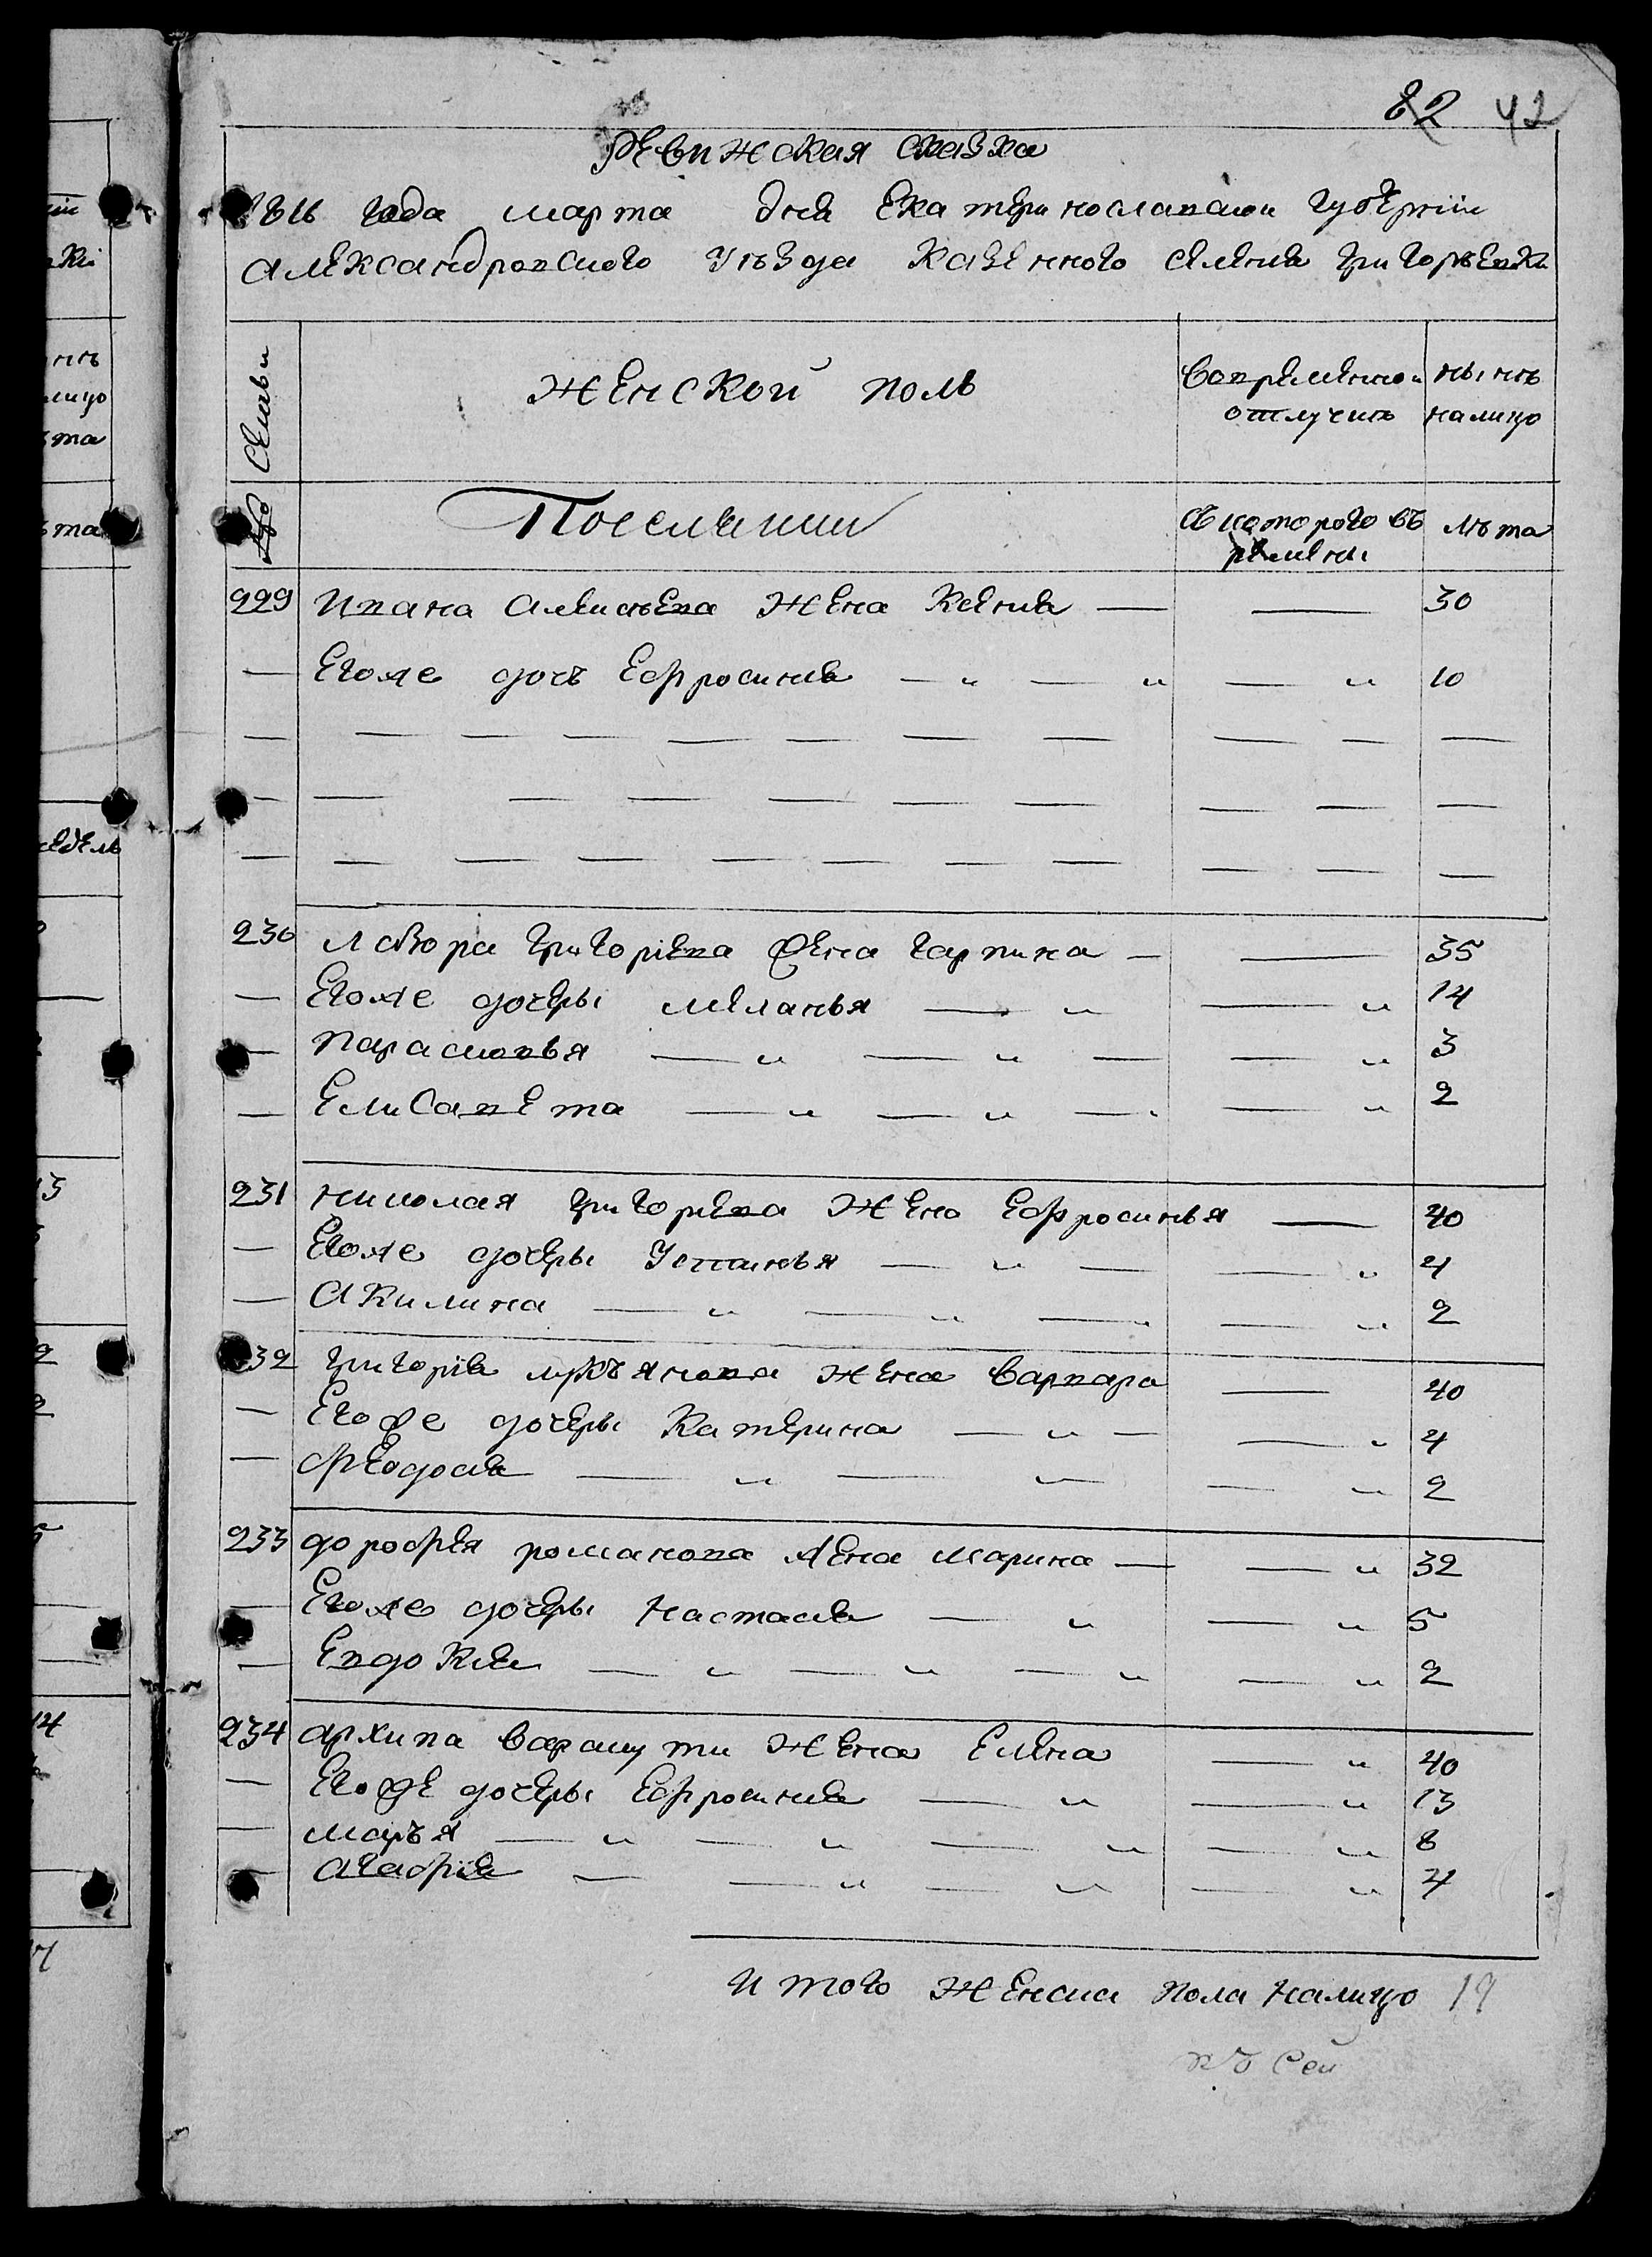 82 42
Ревижская сказка
1816 года марта дня Екатеринославской губерніи
александровского уѣзда казенного селенія григорьевки
№ Семьи
женской полъ
вовременной отлучкѣ
нынѣ налицо
Поселянки
съ которого вѣремени
лѣта
229 ивана алексѣева жена Ксенія — 30
— Егоже дочь Ефросинія — 10
230 Лавора григоріева жена гарпина — 35
— Егоже дочеры меланья — 14
— Парасковья — 3
— Елисавета — 2
231 николая григориева жена Ефросинья — 40
— Егоже дочеры Устинья — 4
— Акилина — 2
232 григорія лукъянова жена варвара — 40
— Егоже дочеры Катерина — 4
— Феодосія — 2
233 дорофея романова жена марина — 32
— Егоже дочеры настасія — 5
— Евдокия — 2
234 архипа варакути жена Елена 40
— Егоже дочеры Ефросинія — 13
— маръя — 8
— Агафія — 4
итого женска пола налицо 19
къ Сей